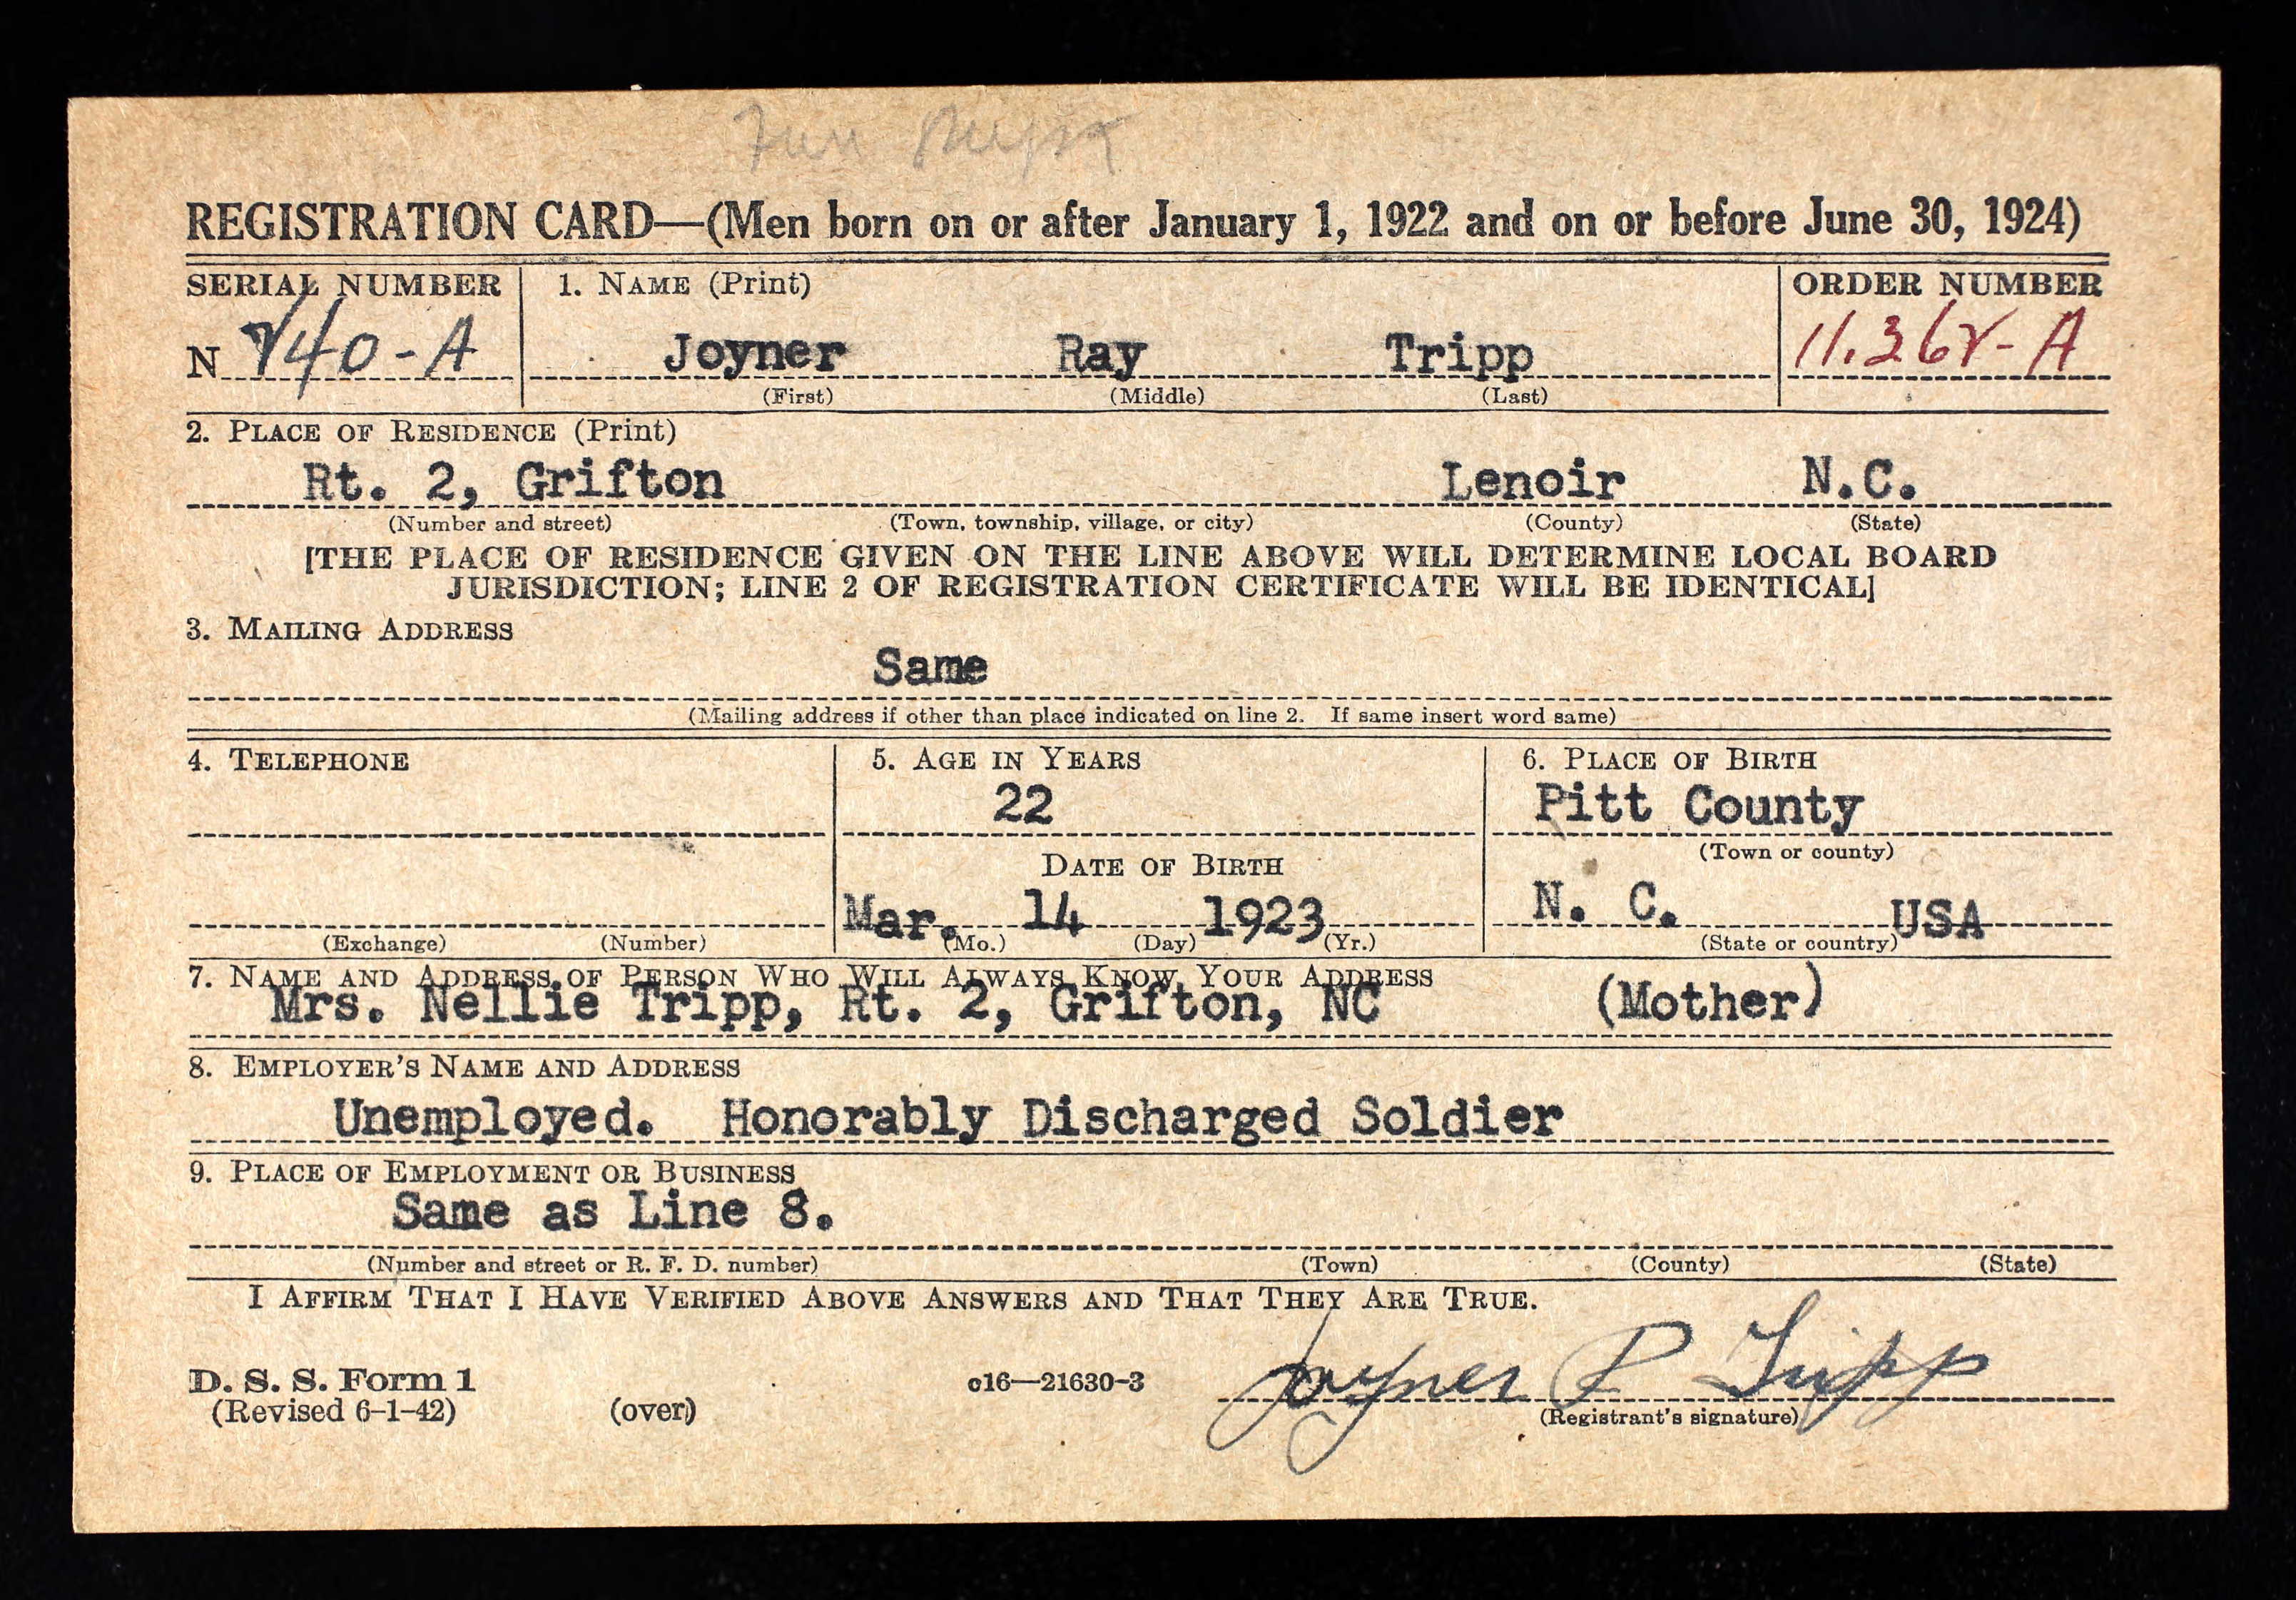 REGISTRATION CARD—(Men born on or after January 1, 1922 and on or before June 30, 1924)
SERIAL NUMBER
1. NAME (Print)
ORDER NUMBER
N 740-A
Joyner Ray Tripp
(First) (Middle) (Last)
2. PLACE OF RESIDENCE (Print)
Rt. 2, Grifton Lenoir N.C.
(Number and street) (Town, township, village, or city) (County) (State)
[THE PLACE OF RESIDENCE GIVEN ON THE LINE ABOVE WILL DETERMINE LOCAL BOARD
JURISDICTION; LINE 2 OF REGISTRATION CERTIFICATE WILL BE IDENTICAL]
3. MAILING ADDRESS
Same
(Mailing address if other than place indicated on line 2. If same insert word same)
4. TELEPHONE
(Exchange) (Number)
5. AGE IN YEARS
22
DATE OF BIRTH
Mar. 14 1923
(Mo.) (Day) (Yr.)
6. PLACE OF BIRTH
Pitt County
(Town or county)
N. C. USA
(State or country)
7. NAME AND ADDRESS OF PERSON WHO WILL ALWAYS KNOW YOUR ADDRESS
Mrs. Nellie Tripp, Rt. 2, Grifton, NC (Mother)
8. EMPLOYER'S NAME AND ADDRESS
Unemployed. Honorably Discharged Soldier
9. PLACE OF EMPLOYMENT OR BUSINESS
Same as Line 8.
(Number and street or R. F. D. number) (Town) (County) (State)
I AFFIRM THAT I HAVE VERIFIED ABOVE ANSWERS AND THAT THEY ARE TRUE.
D. S. S. Form 1
(Revised 6-1-42) (over)
c16—21630-3
Joyner R Tripp
(Registrant's signature)